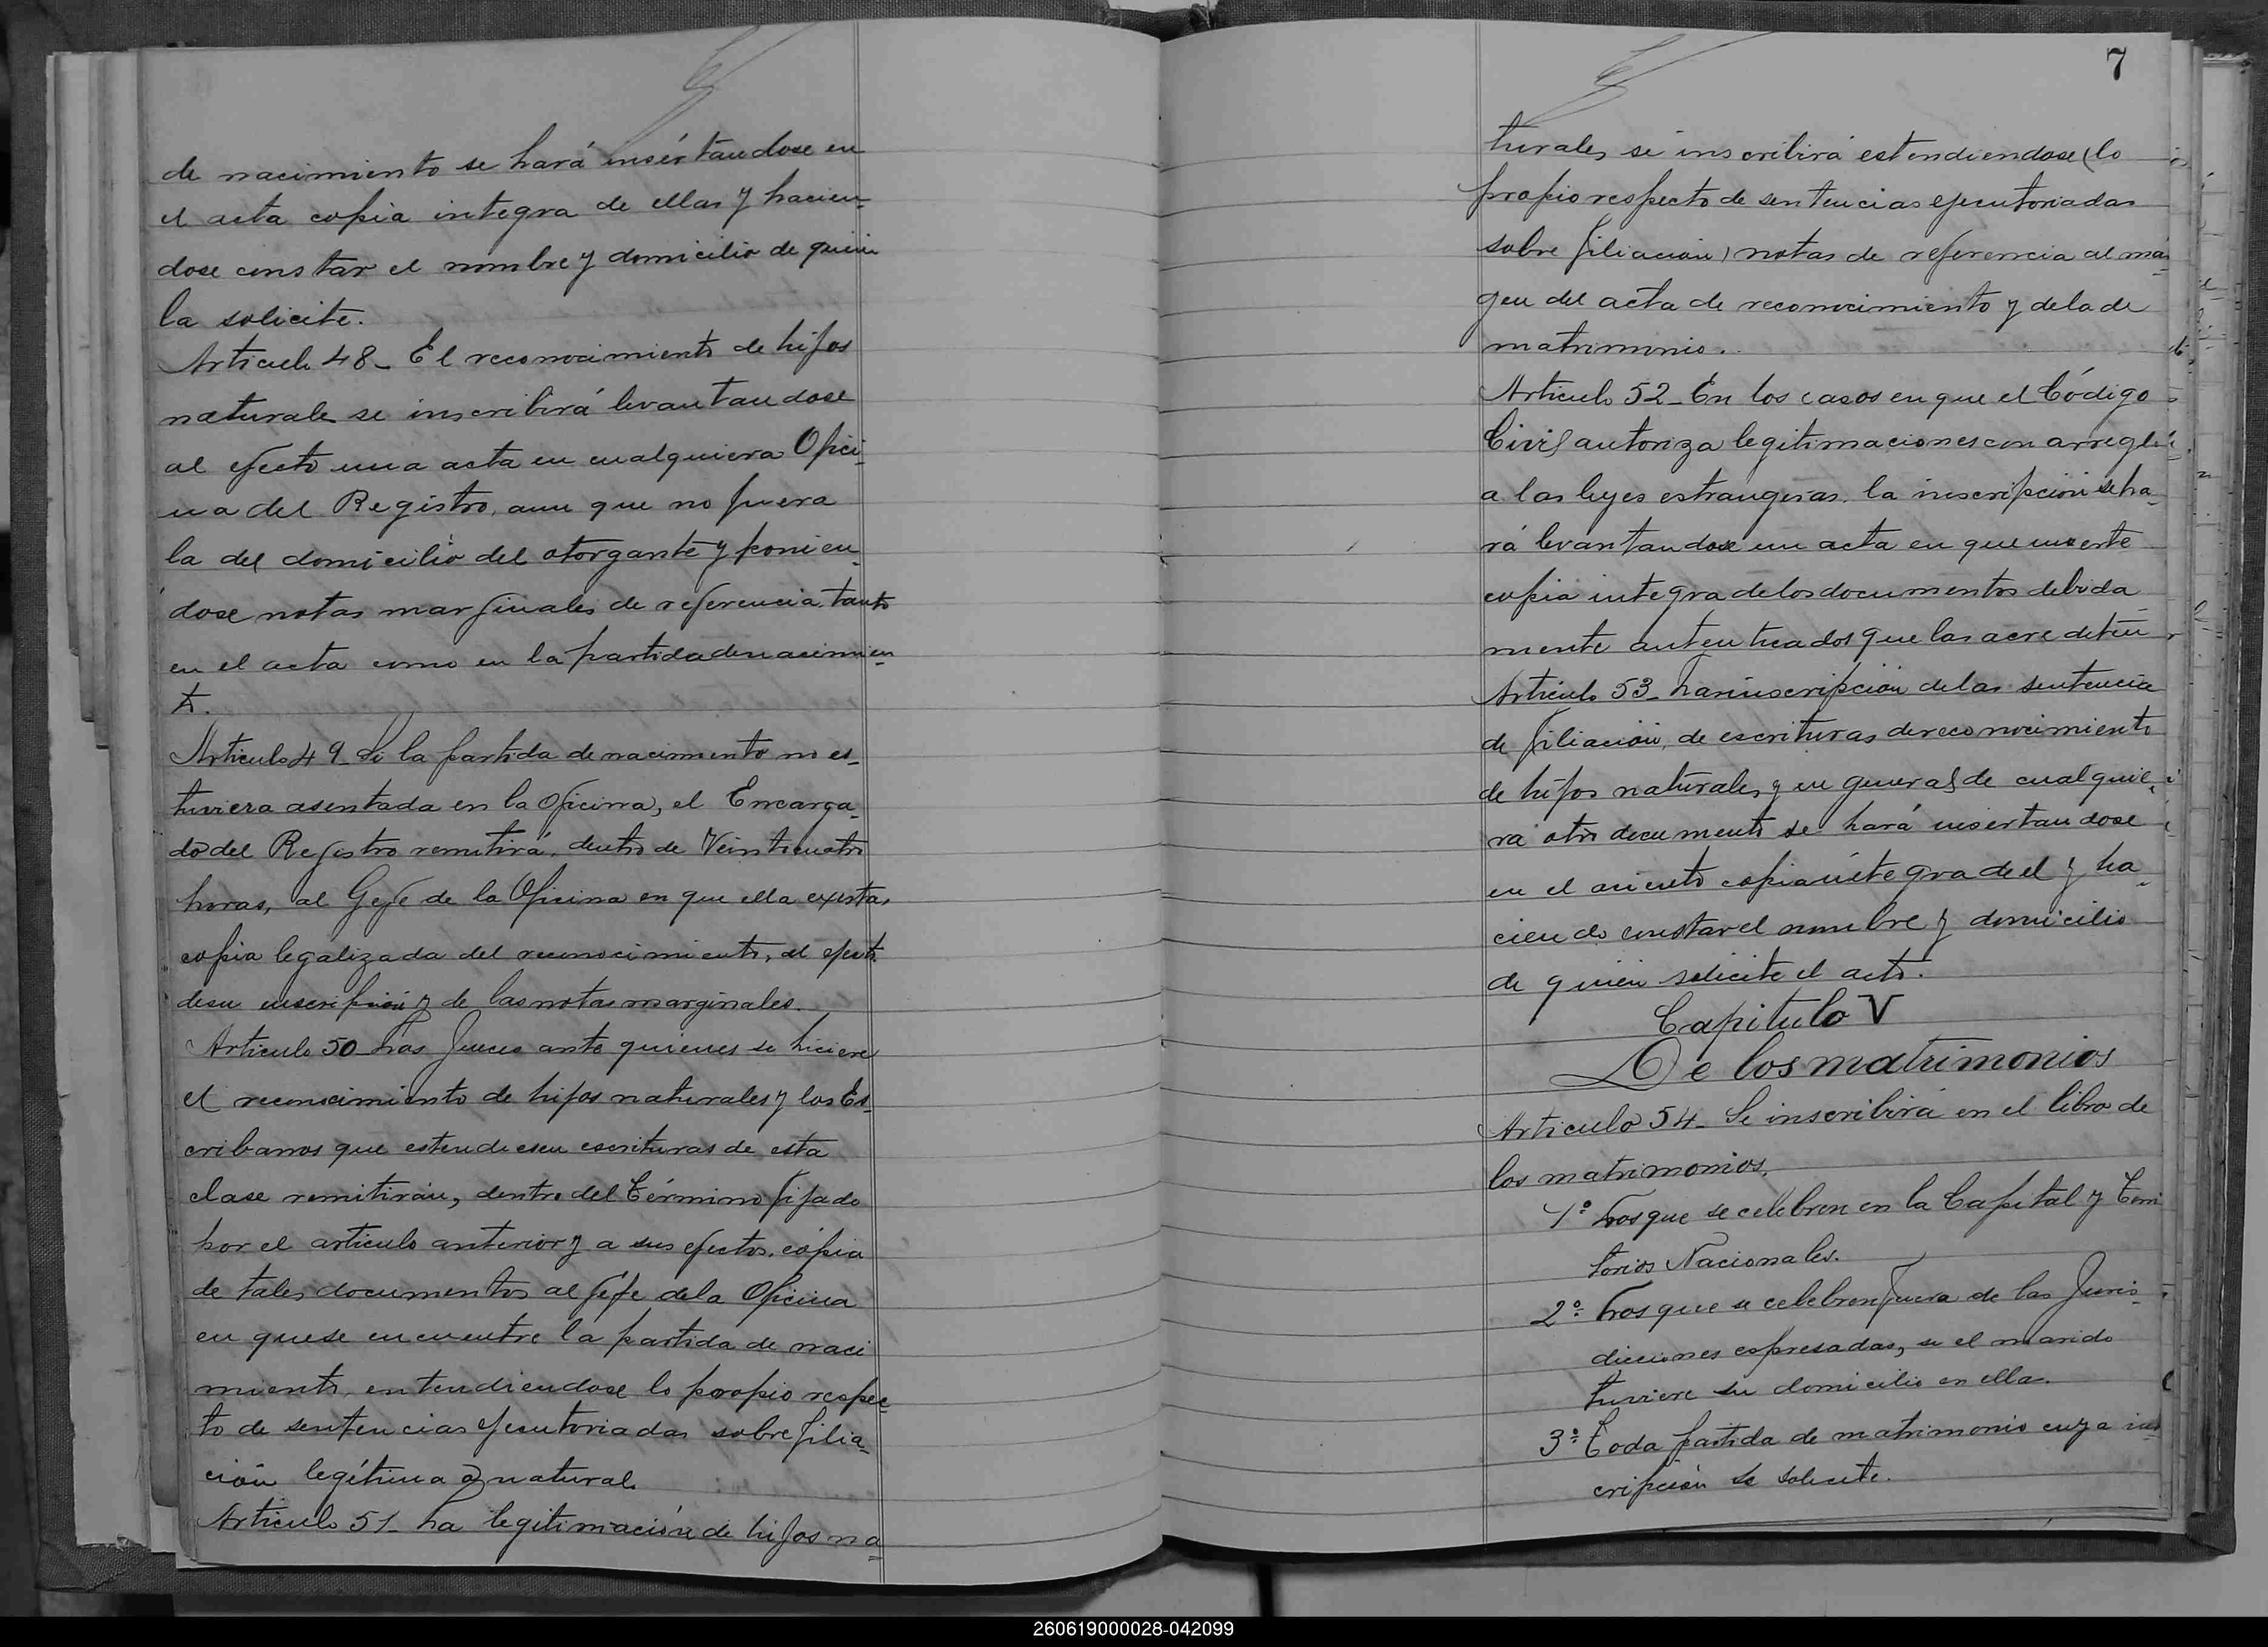 de nacimiento se hará insértandose en
el acta copia integra de ellas y hacien-
dose constar el nombre y domicilio de quien
la solicite.
Articulo 48_ El reconocimiento de hijos
naturales se inscribirá levantandose
al efecto una acta en cualquiera Ofici-
na del Registro, aun que no fuera
la del domicilio del otorgante y ponien-
dose notas marginales de referencia tanto
en el acta como en la partida de nacimien-
to.
Articulo 49_ Si la partida de nacimiento no es-
tuviera asentada en la Oficina, el Encarga-
do del Registro remitirá, dentro de Veinticuatro
horas, al Gefe de la Oficina en que ella exista,
copia legalizada del reconocimiento, al efecto
de su inscripción y de las notas marginales.
Articulo 50_ Los Jueces ante quienes se hiciere
el reconocimiento de hijos naturales y los Es-
cribanos que estendiesen escrituras de esta
clase remitirán, dentro del término fijado
por el articulo anterior y a sus efectos, copia
de tales documentos al Jefe de la Oficina
en que se encuentre la partida de naci
miento, entendiendose lo propio respec-
to de sentencias ejecutoriadas sobre filia-
ción legítima ó natural.
Articulo 51_ La legitimación de hijos na-
7
turales se inscribirá estendiendose (lo
propio respecto de sentencias ejecutoriadas
sobre filiación) notas de referencia al már-
gen del acta de reconocimiento y de la de
matrimonio.
Articulo 52_ En los casos en que el Código
Civil autoriza legitimaciones con arreglo
a las leyes estrangeras, la inscripción se ha-
rá levantandose un acta en que inserte
copia integra de los documentos debida
mente autenticados que las acrediten
Articulo 53_ La inscripción de las sentencia
de filiación, de escrituras de reconocimiento
de hijos naturales y en general de cualquie-
ra otro documento se hará insertandose
en el asiento copia integra de el y ha-
ciendo constar el nombre y domicilio
de quien solicite el acto.
Capitulo V
De los matrimonios
Articulo 54_ Se inscribirá en el libro de
los matrimonios.
1º Los que se celebren en la Capital y Terri
torios Nacionales.
2º Los que se celebren fuera de las Juris-
dicciones espresadas, si el marido
tuviere su domicilio en ella.
3º Toda partida de matrimonio cuya ins
cripción se solicite.
260619000028-042099